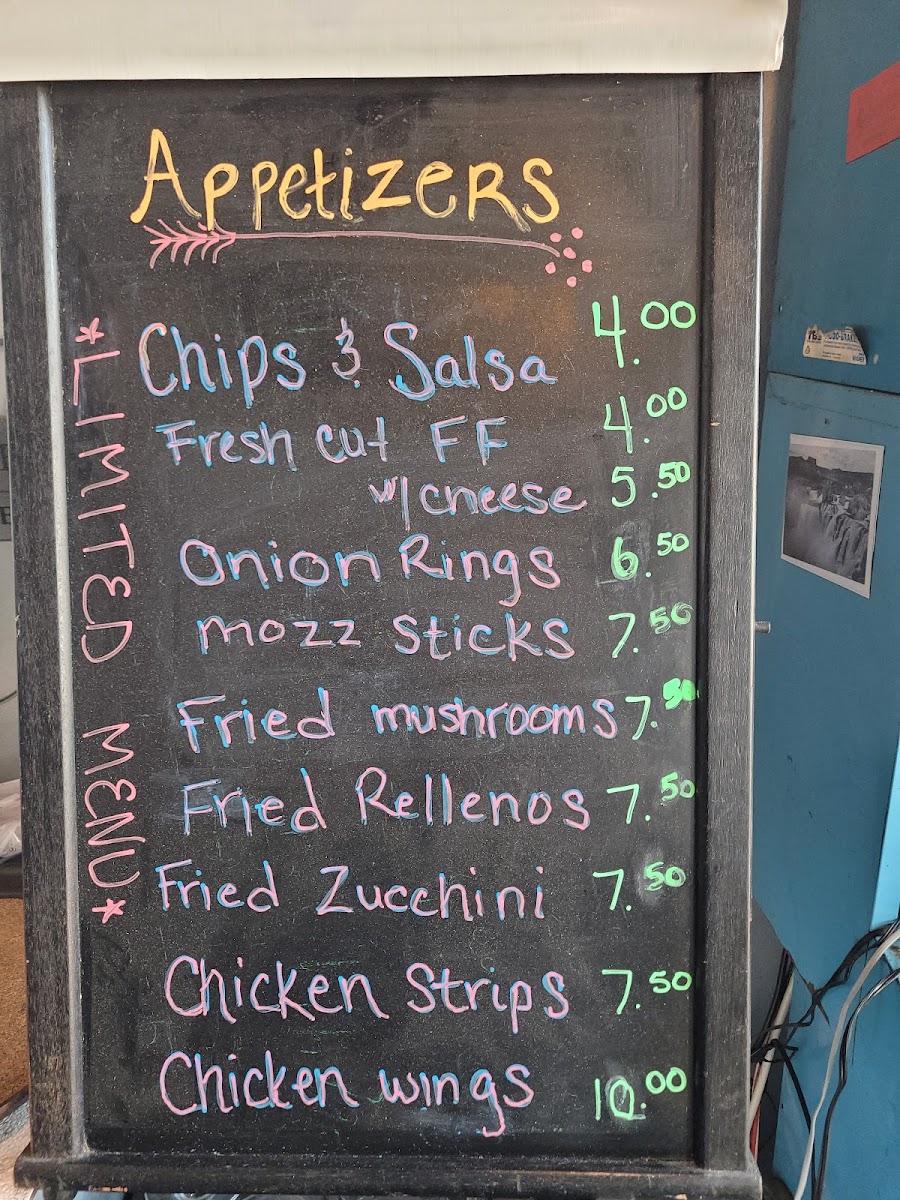 Appetizers
*LIMITED MENU*
Chips & Salsa 4.00
Fresh cut FF 4.00
w/cheese 5.50
Onion Rings 6.50
Mozz Sticks 7.50
Fried mushrooms 7.50
Fried Rellenos 7.50
Fried Zucchini 7.50
Chicken Strips 7.50
Chicken wings 10.00